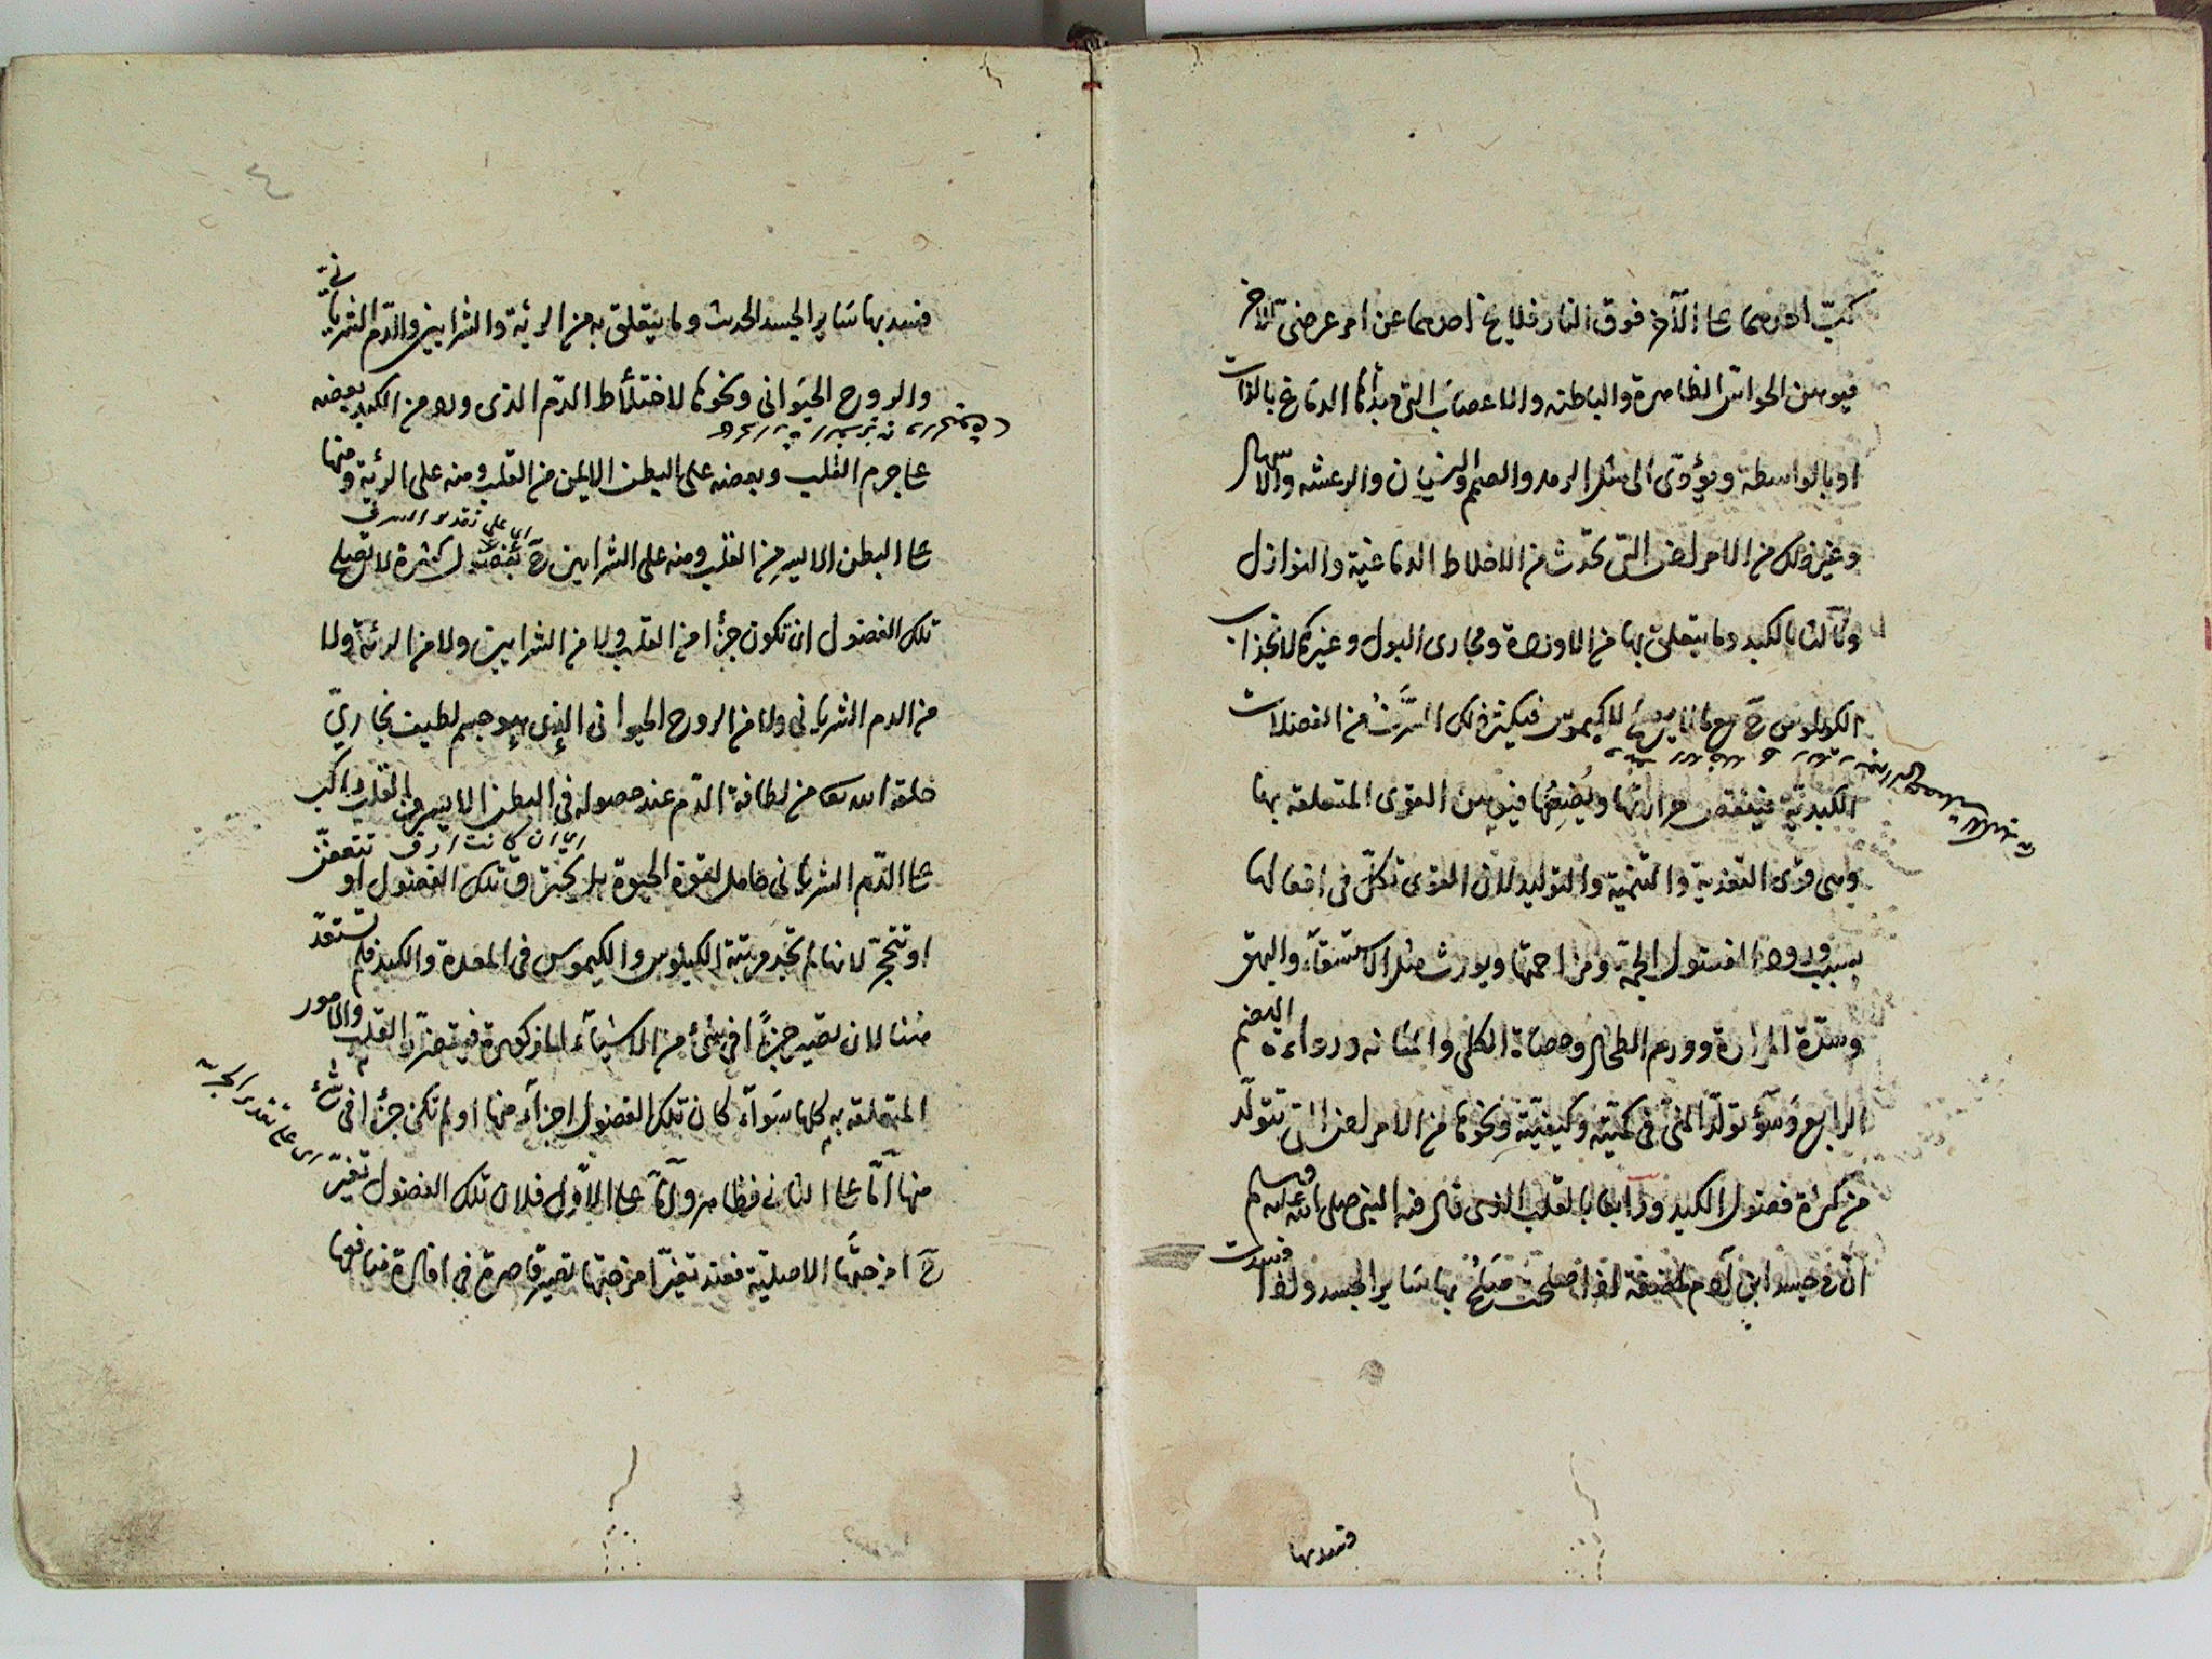 كبت احدهما على الآخر فوق النار فلا يخ احدهما عن امر عرضى للآخر
فيوهن الحواس الظاهرة والباطنه والاعصاب التى مبدأها الدماغ بالذات
او بالواسطة ويؤدى الى مثل الرمد والصمم والنسيان والرعشه والاسهال
وغير ذلك من الامراض التى تحدث من الاخلاط الدماغية والنوازل
وثالثا بالكبد وما يتعلق بها من الاوردة ومجارى البول وغيرها لانجذاب
الكيلوس ح مع مالا للكيموس فيكثر ذلك من الفضلات
الكبدية فينقص حرارتها ويضعفها فيوهن القوى المتعلقه بها
وهى قوى التغذية والتنمية والتوليد لان القوى تكل فى افعالها
بسبب ورود الفضول الجمة ومزاحمتها ويورث مثل الاستسقاء والبهق
وسدة المرارة وورم الطحال وحصاة الكلى والمثانه ورداءة الهضم
الرابع وسؤ تولد المنى فى كميته وكيفيته ونحوها من الامراض التى تتولد
من كثرة فضول الكبد ورابعا بالقلب الذى قال فيه النبى صلى الله عليه وسلم
ان فى جسد ابن آدم لمضغة اذا صلحت صلح بها سائر الجسد واذا فسدت
فسد بها
٤
فسد بها سائر الجسد الحديث وما يتعلق به من الرئة والشرايين والدم الشريانى
والروح الحيوانى ونحوها لاختلاط الدم الذى ورد من الكبد بعضه
على جرم القلب وبعضه على البطن الايمن من القلب ومنه على الرئة ومنها
على البطن الايسر من القلب ومنه على الشرايين ح بفضول كثرة لا تصلح
تلك الفضول ان تكون جزأ من القلب ولا من الشرايين ولا من الرئة ولا
من الدم الشريانى ولا من الروح الحيوانى الذى هو جسم لطيف بخارى
خلقه الله تعا من لطافة الدم عند حصوله فى البطن الايسر من القلب راكب
على الدم الشريانى حامل لقوة الحيوة بل تحترق تلك الفضول او تتعفن
اى ان كانت ارق
او تتحجر لانها لم تجد مرتبة الكيلوس والكيموس فى المعدة والكبد فلم تستعد
هنا لان تصير جزأ فى شئ من الاشياء المذكورة فيتضرر القلب والامور
المتعلقه به كلها سواء كان تلك الفضول اجزاء منها او لم تكن جزأ فى شئ
اى على تقدير الجزئية
منها اما على الثانى فظاهر واما على الاول فلان تلك الفضول تغير
ح امزجتها الاصلية فعند تغير امزجتها تصير قاصرة فى افادة منافعها